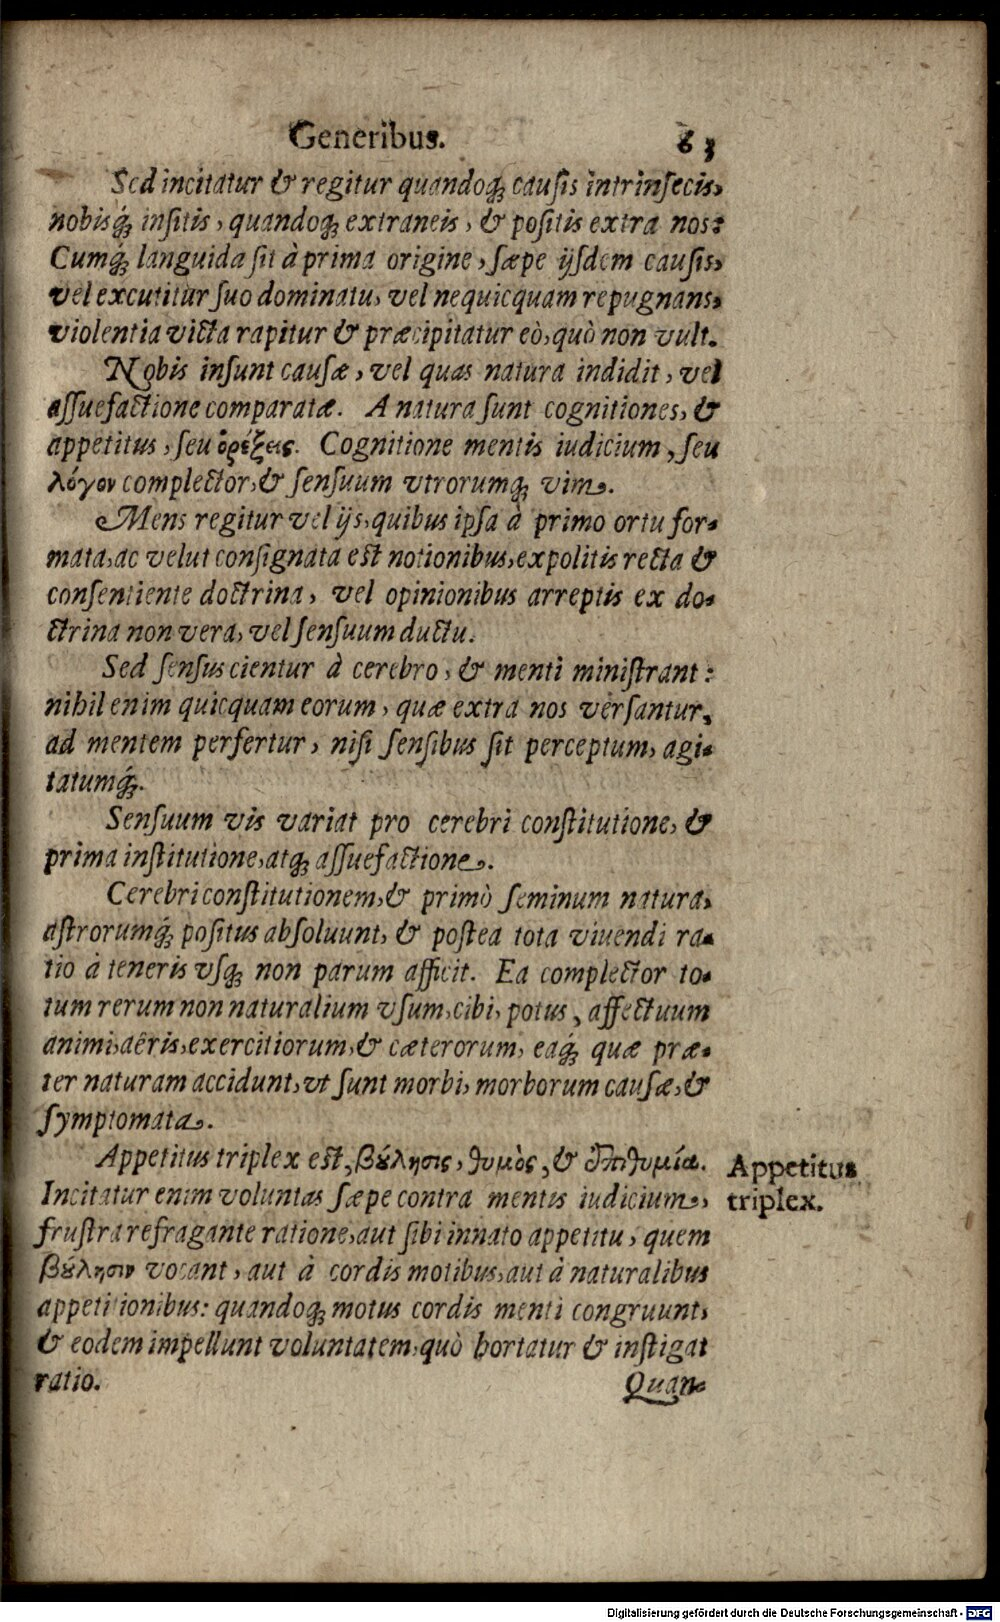 Generibus. 83
Sed incitatur & regitur quandoq; causis intrinsecis,
nobisq́; insitis, quandoq; extraneis, & positis extra nos:
Cumq́; languida sit à prima origine, sæpe ijsdem causis,
vel excutitur suo dominatu, vel nequicquam repugnans,
violentia victa rapitur & præcipitatur eò, quò non vult.
Nobis insunt causæ, vel quas natura indidit, vel
assuefactione comparatæ. A natura sunt cognitiones, &
appetitus, seu ὀρέξεις. Cognitione mentis iudicium, seu
λόγον complector, & sensuum vtrorumq; vim.
Mens regitur vel ijs, quibus ipsa à primo ortu for-
mata, ac velut consignata est notionibus, expolitis recta &
consentiente doctrina, vel opinionibus arreptis ex do-
ctrina non vera, vel sensuum ductu.
Sed sensus cientur à cerebro, & menti ministrant:
nihil enim quicquam eorum, quæ extra nos versantur,
ad mentem perfertur, nisi sensibus sit perceptum, agi-
tatumq́;.
Sensuum vis variat pro cerebri constitutione, &
prima institutione, atq; assuefactione.
Cerebri constitutionem, & primò seminum natura,
astrorumq́; positus absoluunt, & postea tota viuendi ra-
tio à teneris vsq; non parum afficit. Ea complector to-
tum rerum non naturalium vsum, cibi, potus, affectuum
animi, aëris, exercitiorum, & cæterorum, eaq́; quæ præ-
ter naturam accidunt, vt sunt morbi, morborum causæ, &
symptomata.
Appetitus triplex est, βȣ́λησις, θυμὸς, & ἐπιθυμία.
Appetitus
triplex.
Incitatur enim voluntas sæpe contra mentis iudicium,
frustra refragante ratione, aut sibi innato appetitu, quem
βȣ́λησιν vocant, aut à cordis motibus, aut à naturalibus
appetitionibus: quandoq; motus cordis menti congruunt,
& eodem impellunt voluntatem, quò hortatur & instigat
ratio.
Quan-
Digitalisierung gefördert durch die Deutsche Forschungsgemeinschaft - DFG